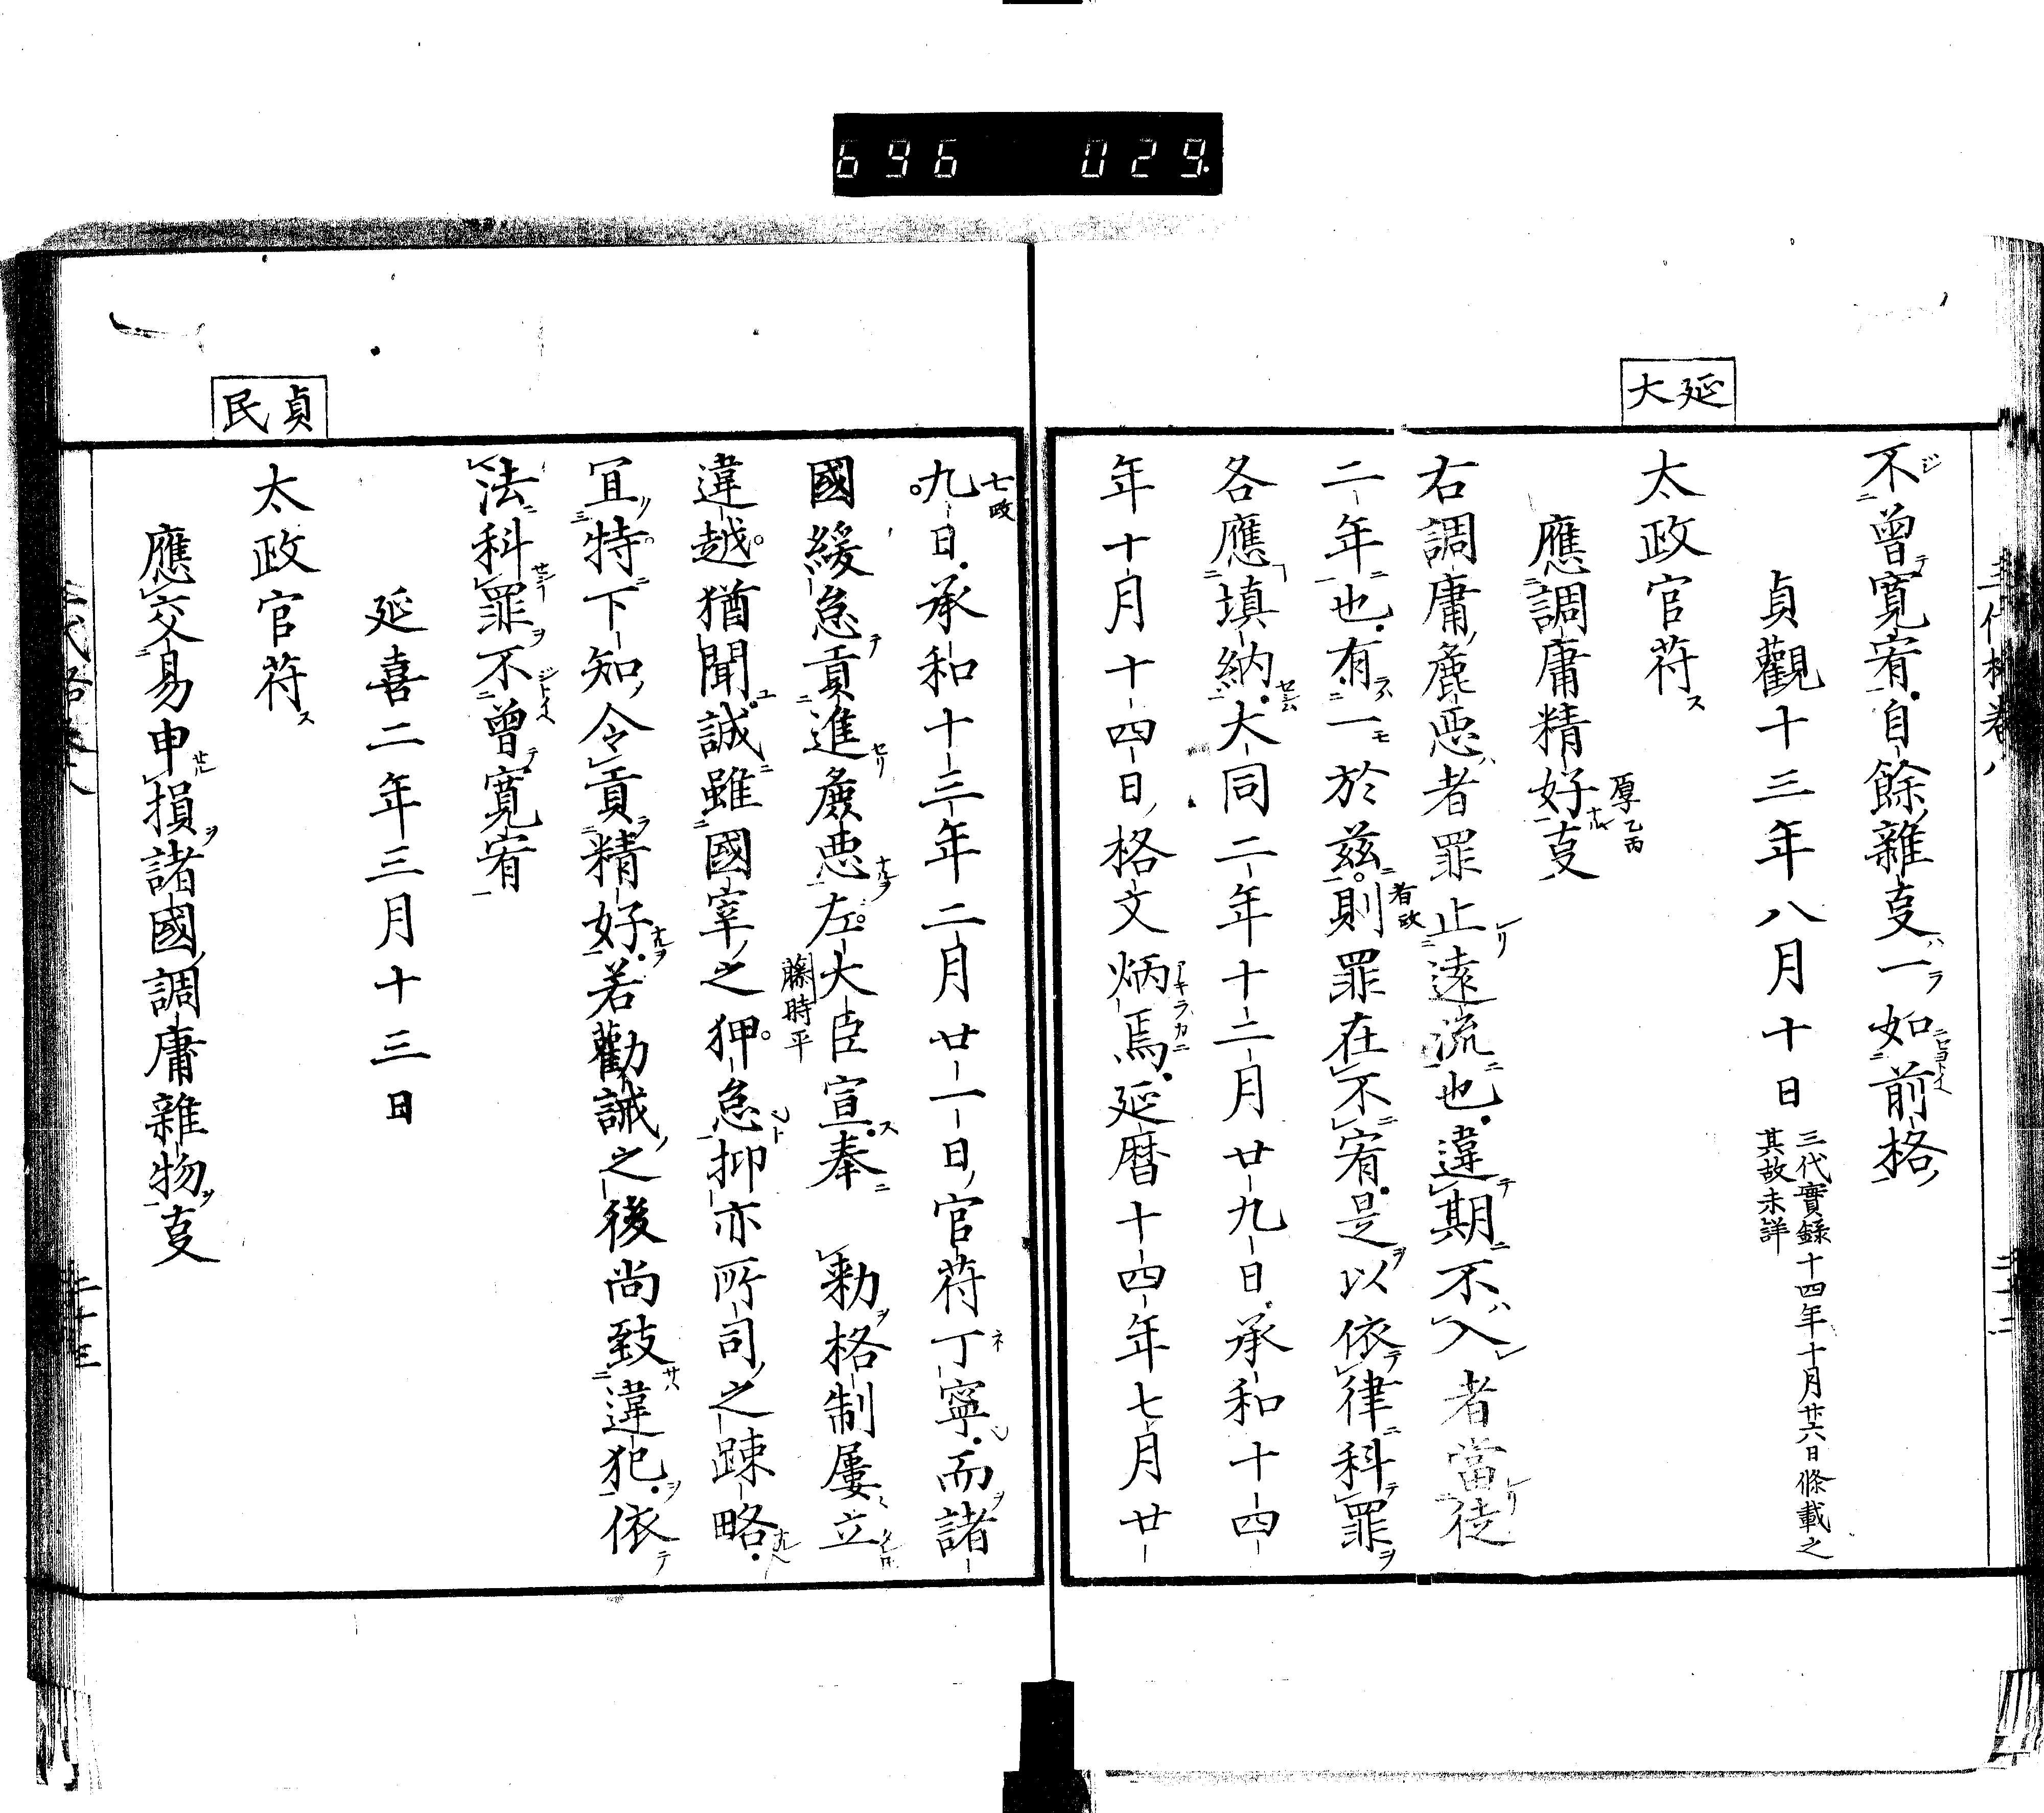 696 029.
延大
不曾寛宥自餘雜叓一如前格
貞觀十三年八月十日 三代實録十四年十月廿六日條載之其故未詳
太政官符ス
應調庸精好叓 厚乙丙
右調庸麁悪者罪止遠流也違期不入者當徒
二年也有一於兹則罪在不宥是以依律科罪
各應填納大同二年十二月廿九日承和十四
年十月十四日格文炳焉延暦十四年七月廿
貞民
九日承和十三年二月廿一日官符丁寧而諸
七政
國緩怠貢進麁悪左大臣宣奉 勅格制屢立
藤時平
違越猶聞誠雖國宰之狎怠抑亦所司之踈略
冝特下知令貢精好若勸誡之後尚致違犯依
法科罪不曾寛宥
延喜二年三月十三日
太政官符ス
應交易申損諸國調庸雜物叓